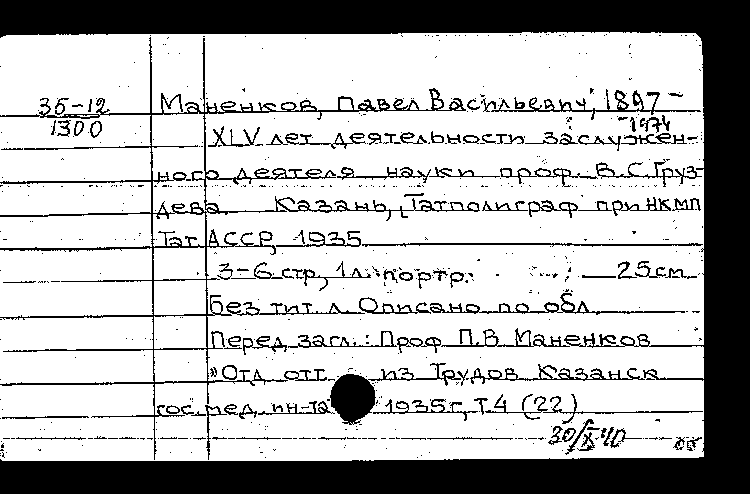 35-12 Маненков, Павел Васильевич, 1897-
1300 -1974
XLV лет деятельности заслужен-
ного деятеля науки проф. В.С. Груз-
дева. Казань, Татполиграф при НКМП
Тат. АССР, 1935
3-6 стр, 1 л. портр. 25 см
Без тит. л. Описано по обл.
Перед загл.: Проф П.В Маненков
"Отд отт из Трудов Казанск
гос. мед. ин-та 1935 г, Т.4 (22)
30/X 40